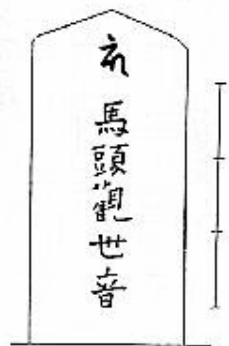 馬頭觀世音